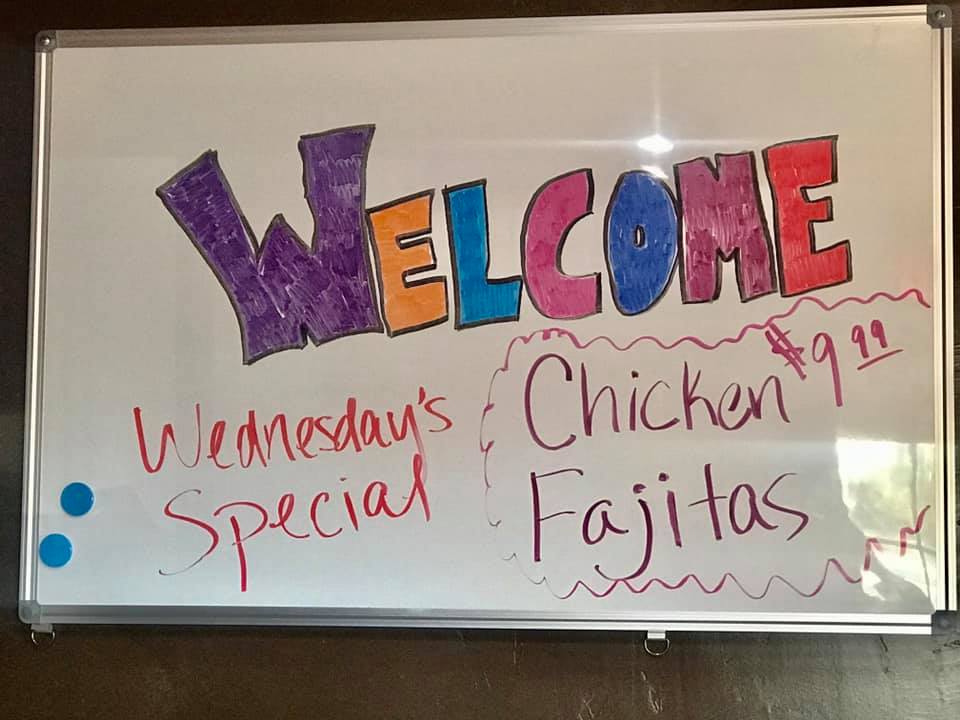 WELCOME
Wednesday's
Special
Chicken $9.99
Fajitas